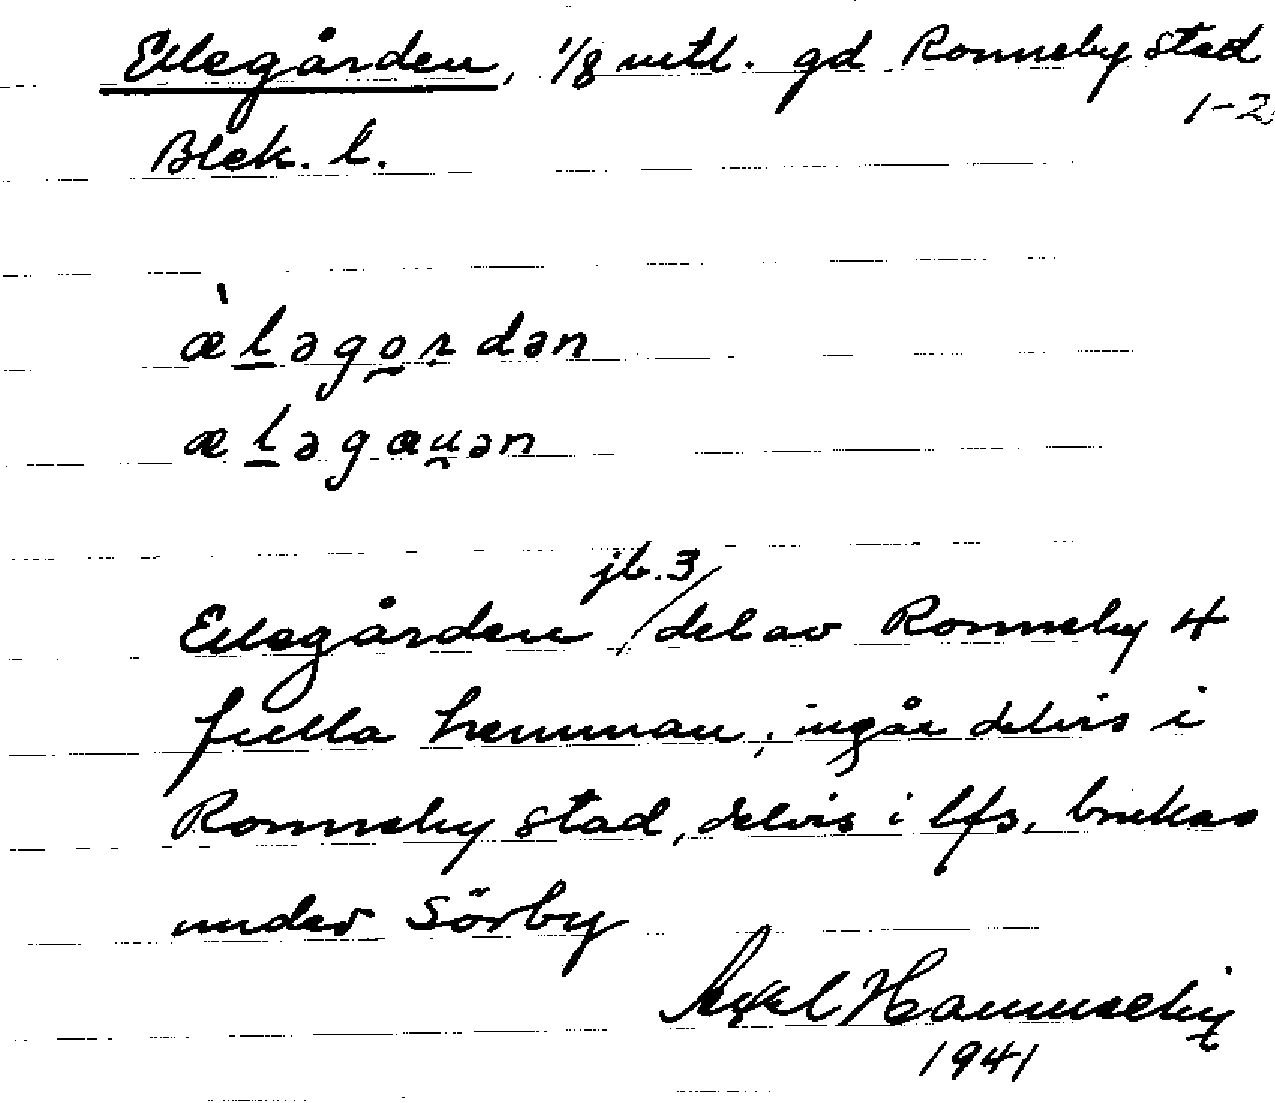 Ellegården, 1/8 mtl. gd Ronneby stad
1-2
Blek. l.
æ̀ḻəgo̰ṛdən
æḻəgæṵən
jb. 3
Ellegården / del av Ronneby 4
fulla hemman, ingår delvis i
Ronneby stad, delvis i lfs, brukas
under Sörby
Axel Hamneby
1941